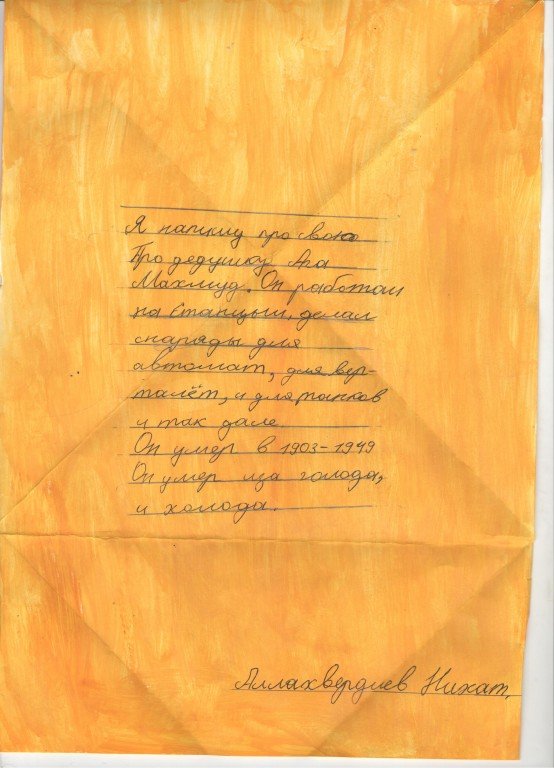 Я напишу про свою
Про дедушку Ага
Махмуд. Он работал
на Станцыи, делал
снаряды для
автомат, для вер-
талёт, и для танков
и так дале.
Он умер в 1903-1949
Он умер иза голода,
и холода.
Аллахвердиев Нихат.